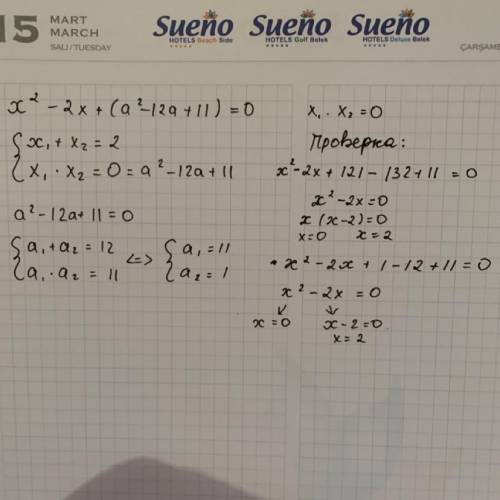 15 МАРТ
MARCH
SALI/TUESDAY
Sueño Sueño Sueño
HOTELS Beach Side HOTELS Golf Belek HOTELS Deluxe Belek
ÇARŞAMB
x² - 2x + (a² - 12a + 11) = 0
{ x₁ + x₂ = 2
{ x₁ · x₂ = 0 = a² - 12a + 11
a² - 12a + 11 = 0
{ a₁ + a₂ = 12 <=> { a₁ = 11
{ a₁ · a₂ = 11 { a₂ = 1
x₁ · x₂ = 0
Проверка:
x² - 2x + 121 - 132 + 11 = 0
x² - 2x = 0
x (x - 2) = 0
x = 0 x = 2
• x² - 2x + 1 - 12 + 11 = 0
x² - 2x = 0
↙ ↘
x = 0 x - 2 = 0
x = 2